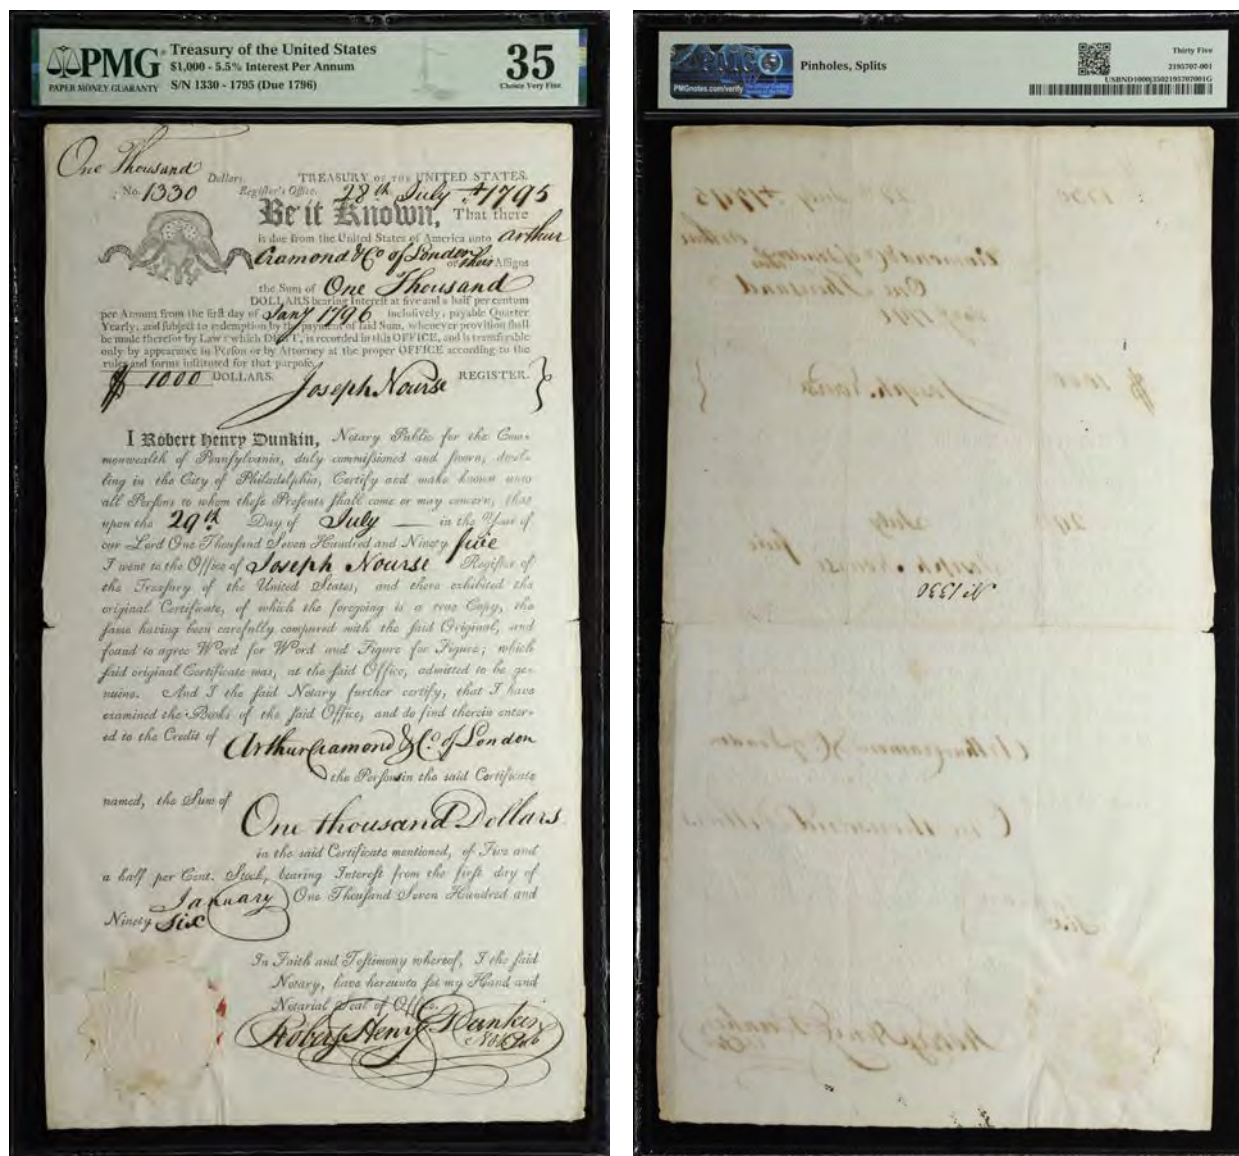 PMG
PAPER MONEY GUARANTY
Treasury of the United States
$1,000 - 5.5% Interest Per Annum
S/N 1330 - 1795 (Due 1796)
35
Choice Very Fine
One Thousand Dollars.
TREASURY OF THE UNITED STATES.
No. 1330 Regiſter's Office. 28th July 1795
Be it Known, That there
is due from the United States of America unto Arthur
Cramond & Co of London or their Aſſigns
the Sum of One Thousand
DOLLARS bearing Intereſt at five and a half per centum
per Annum from the firſt day of Jany 1796 incluſively, payable Quarter
Yearly, and ſubject to redemption by the payment of ſaid Sum, whenever proviſion ſhall
be made therefor by Law: which DEBT, is recorded in this OFFICE, and is transferable
only by appearance in Perſon or by Attorney at the proper OFFICE according to the
rules and forms inſtituted for that purpoſe.
$ 1000 DOLLARS. Joseph Nourse REGISTER.
I Robert Henry Dunkin, Notary Public for the Com-
monwealth of Pennſylvania, duly commiſſioned and ſworn, dwel-
ling in the City of Philadelphia, Certify and make known unto
all Perſons to whom theſe Preſents ſhall come or may concern, that
upon the 29th Day of July in the Year of
our Lord One Thouſand Seven Hundred and Ninety five
I went to the Office of Joseph Nourse Regiſter of
the Treaſury of the United States, and there exhibited the
original Certificate, of which the foregoing is a true Copy, the
ſame having been carefully compared with the ſaid Original, and
found to agree Word for Word and Figure for Figure; which
ſaid original Certificate was, at the ſaid Office, admitted to be ge-
nuine. And I the ſaid Notary further certify, that I have
examined the Books of the ſaid Office, and do find therein enter-
ed to the Credit of Arthur Cramond & Co. of London
the Perſons in the said Certificate
named, the Sum of
One thousand Dollars
in the said Certificate mentioned, of Five and
a half per Cent. Stock, bearing Intereſt from the firſt day of
January One Thouſand Seven Hundred and
Ninety Six
In Faith and Teſtimony whereof, I the ſaid
Notary, have hereunto ſet my Hand and
Notarial Seal of Office.
Robert Henry Dunkin
Not. Pub
PMG
PMGnotes.com/verify
Pinholes, Splits
Thirty Five
2195707-001
USBND1000|3502195707001G
No 1330